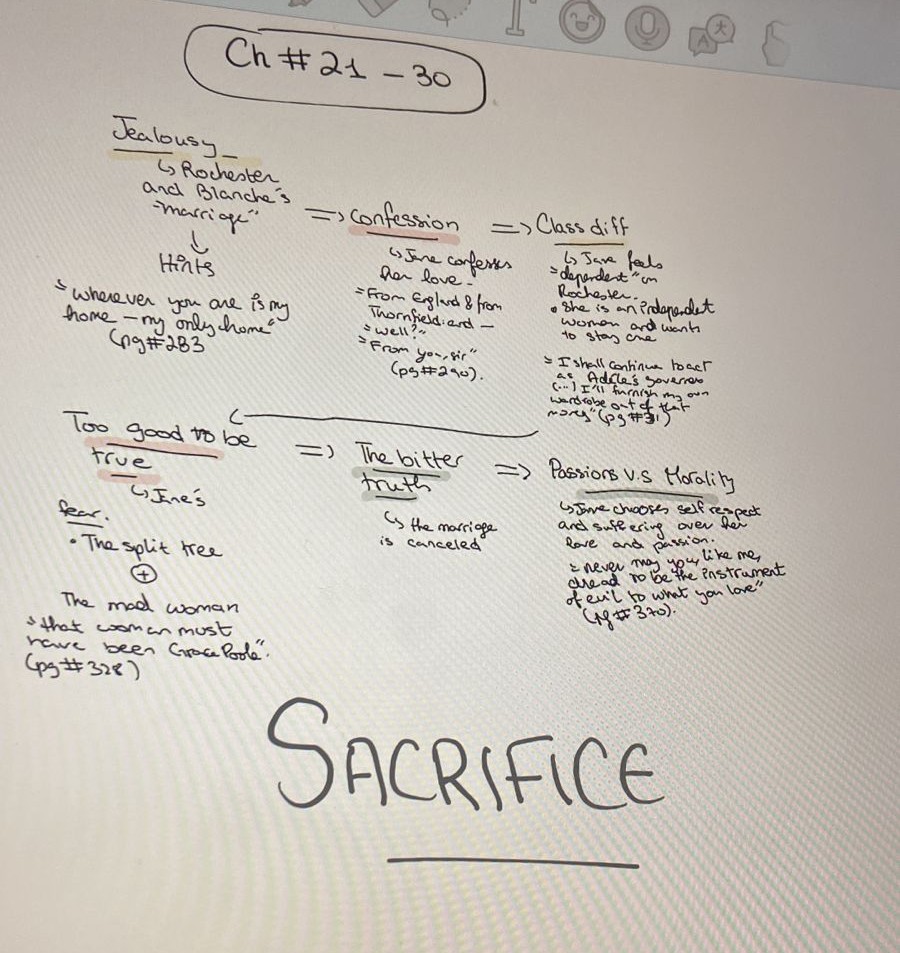 Ch # 21 - 30
Jealousy
↳ Rochester
and Blanche's
"marriage"
↓
Hints
"wherever you are is my
home - my only home"
(pg#283
=> Confession
↳ Jane confesses
her love.
"From England & from
Thornfield: and —
"well?"
"From you, sir"
(pg#290).
=> Class diff
↳ Jane feels
"dependent" on
Rochester.
• She is an independent
women and wants
to stay one
"I shall continue to act
as Adèle's governess
(...) I'll furnish my own
wardrobe out of that
money" (pg#31)
Too good to be
true
↳ Jne's
fear.
• The split tree
+
The mad woman
"that woman must
have been Grace Poole".
(pg#328)
=> The bitter
truth
↳ the marriage
is canceled
=> Passions V.S Morality
↳ Jane chooses self respect
and suffering over her
love and passion.
"never may you, like me,
dread to be the instrument
of evil to what you love"
(pg#370).
SACRIFICE